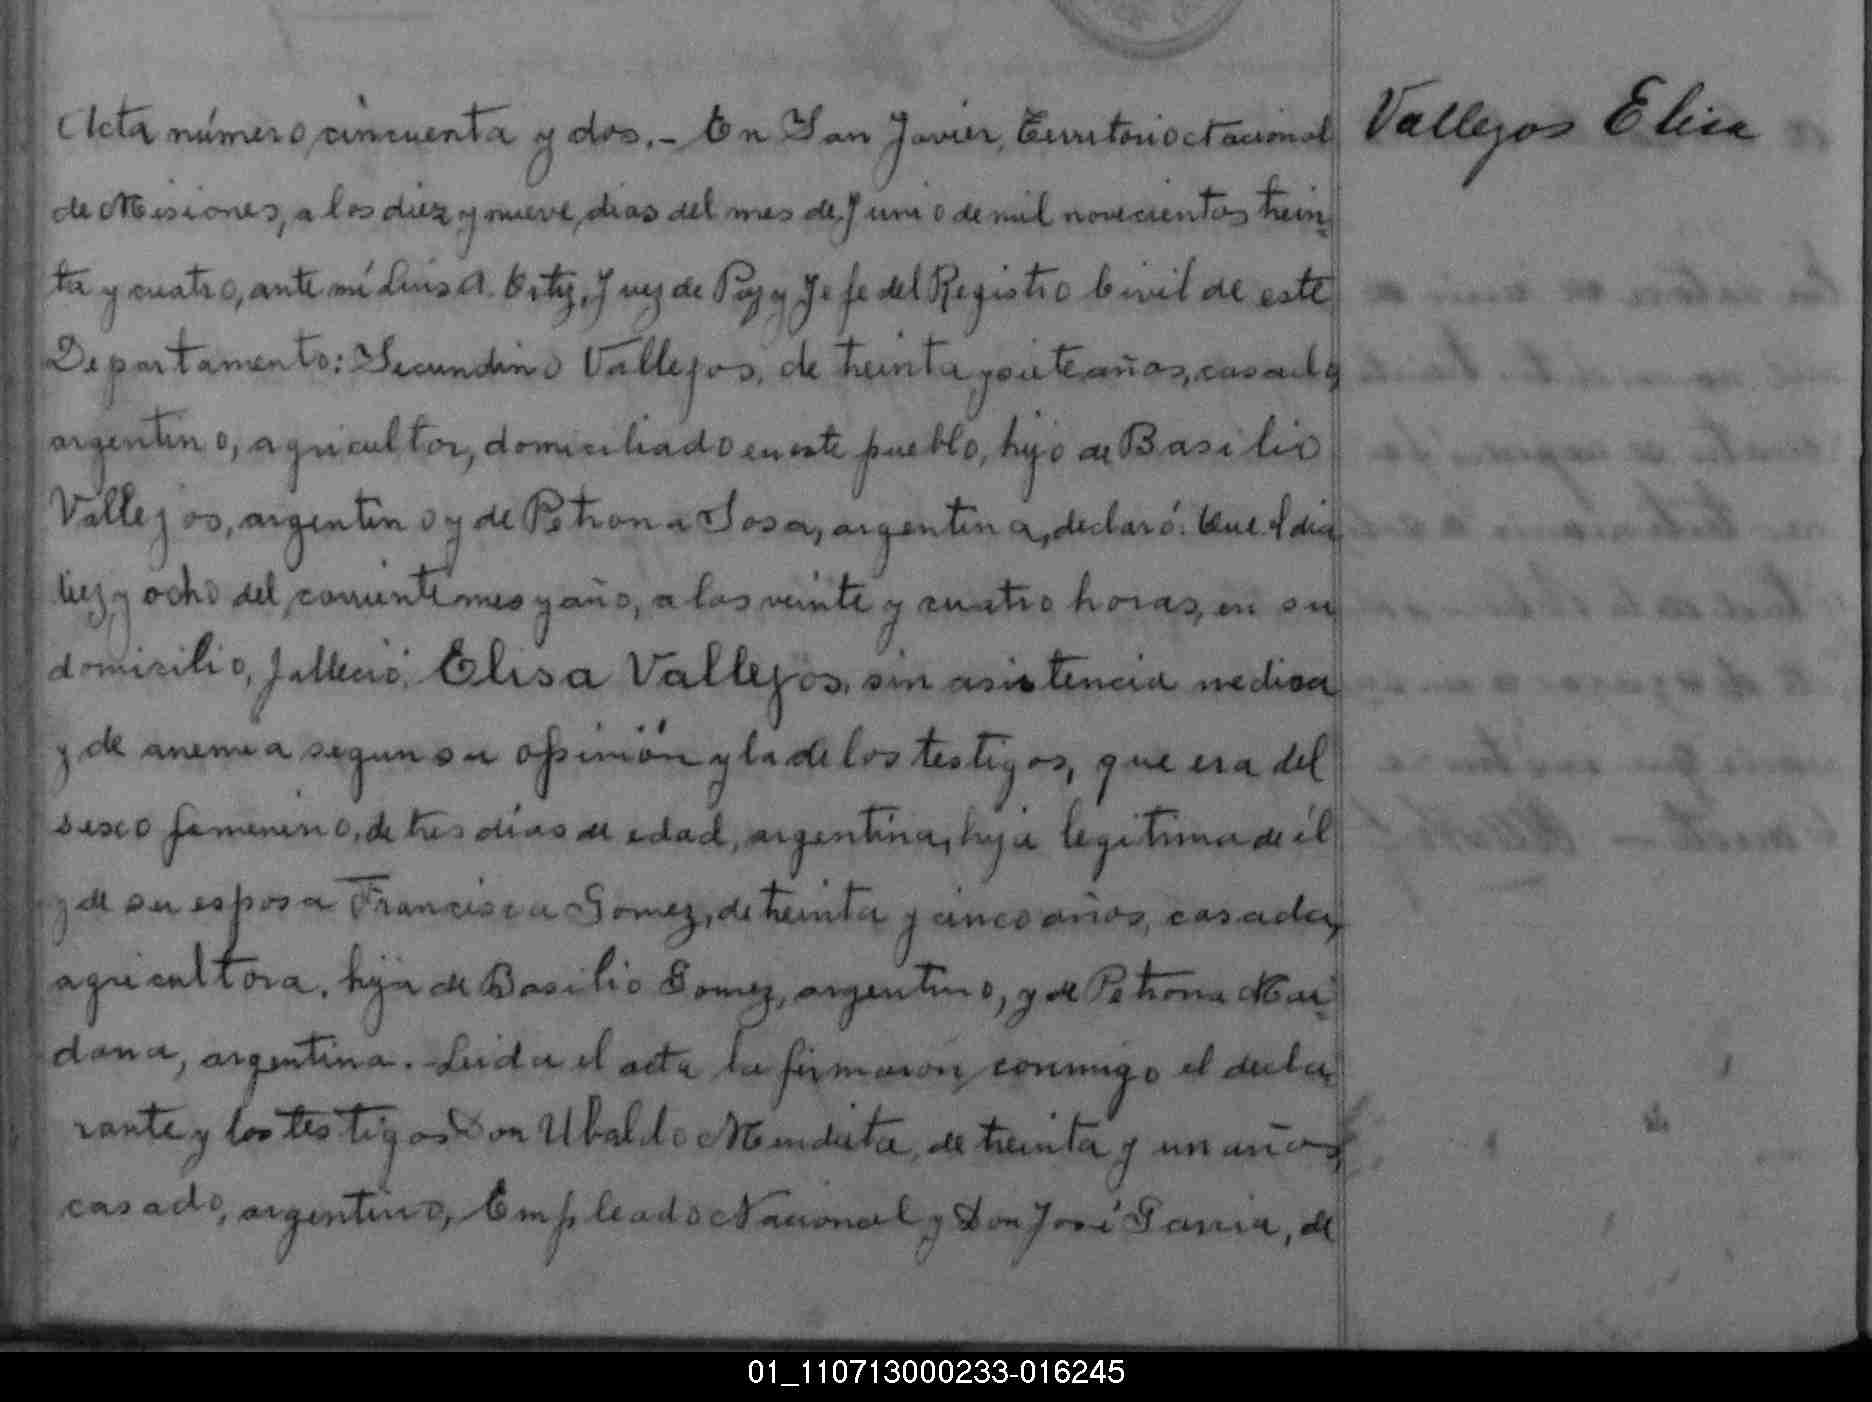 Acta número cincuenta y dos.- En San Javier, Territorio Nacional
Vallejos Elisa
de Misiones, a los diez y nueve dias del mes de Junio de mil novecientos trein-
ta y cuatro, ante mí Luis A. Ortiz, Juez de Paz y Jefe del Registro Civil de este
Departamento: Secundino Vallejos, de treinta y siete años, casado,
argentino, agricultor, domiciliado en este pueblo, hijo de Basilio
Vallejos, argentino y de Petrona Sosa, argentina, declaró: Que el dia
diez y ocho del corriente mes y año, a las veinte y cuatro horas, en su
domicilio, falleció Elisa Vallejos, sin asistencia medica
y de anemia segun su opinión y la de los testigos, que era del
sexo femenino, de tres días de edad, argentina, hija legitima de él
y de su esposa Francisca Gomez, de treinta y cinco años, casada,
agricultora, hija de Basilio Gomez, argentino, y de Petrona Mai-
dana, argentina.- Leida el acta la firmaron conmigo el decla-
rante y los testigos Don Ubaldo Mendieta, de treinta y un años,
casado, argentino, Empleado Nacional y Don José Garcia, de
01_110713000233-016245